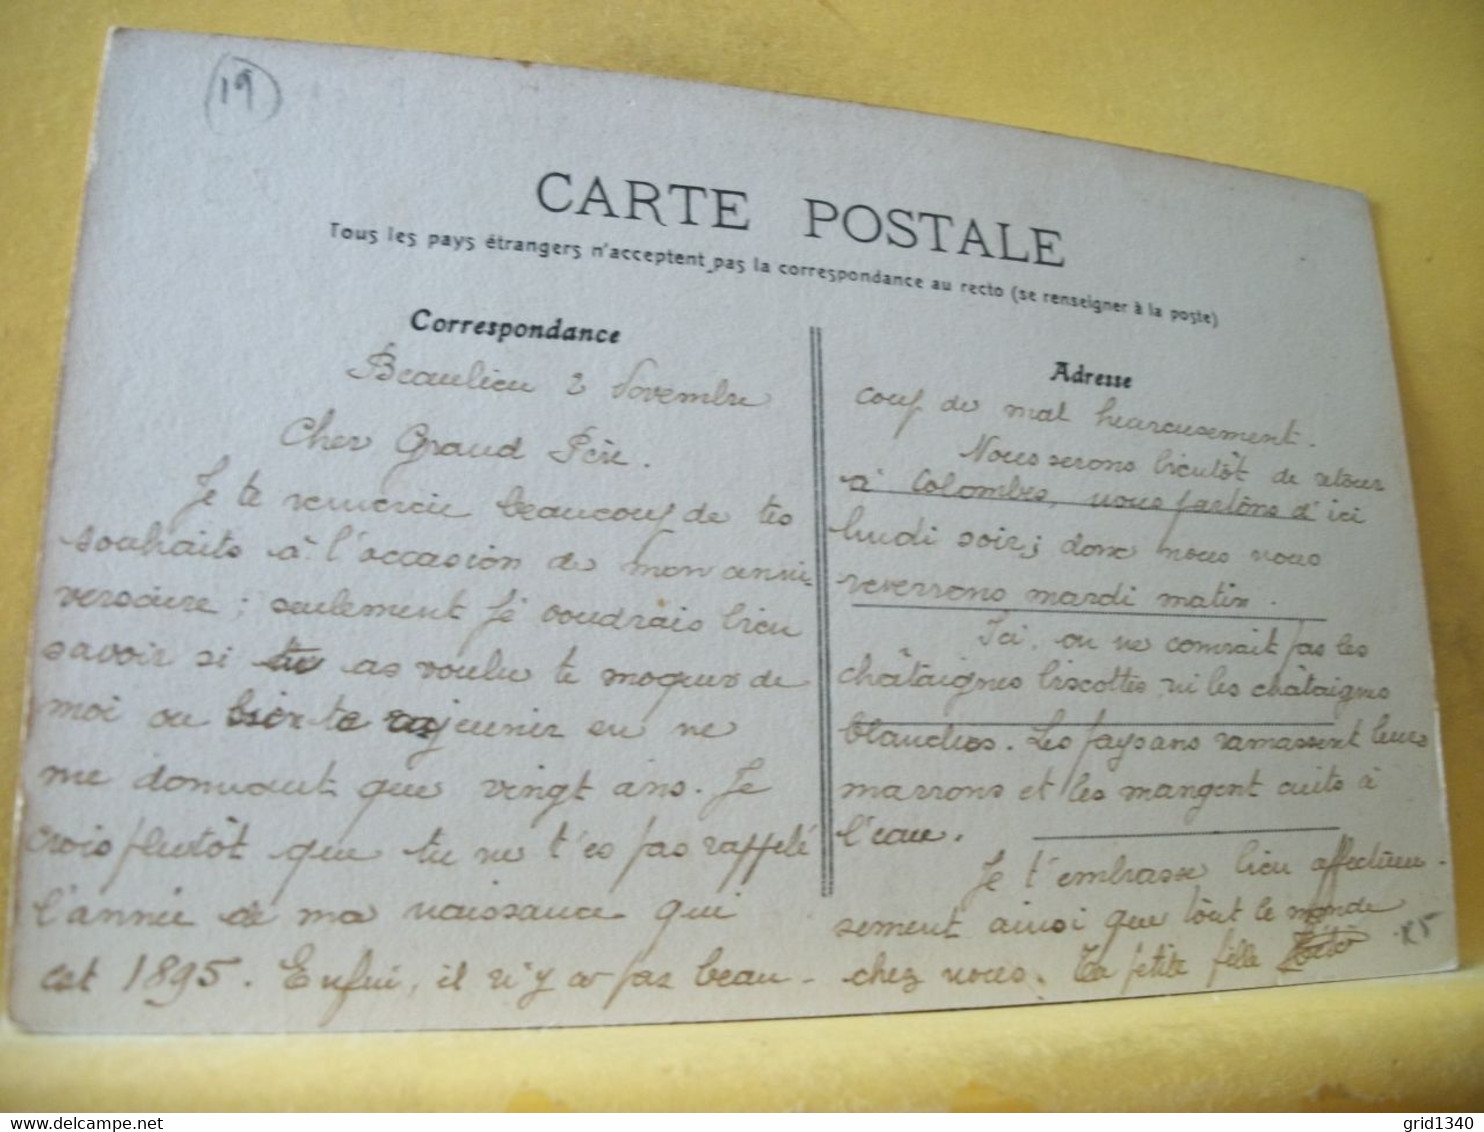 19
CARTE POSTALE
Tous les pays étrangers n'acceptent pas la correspondance au recto (se renseigner à la poste)
Correspondance
Beaulieu 2 Novembre
Cher Grand Père.
Je te remercie beaucoup de tes
souhaits à l'occasion de mon anni
versaire ; seulement je voudrais bien
savoir si tu as voulu te moquer de
moi ou bien te rajeunir en ne
me donnant que vingt ans. Je
crois plutôt que tu ne t'es pas rappelé
l'année de ma naissance qui
est 1895. Enfin, il n'y a pas beau-
Adresse
coup de mal heureusement.
Nous serons bientôt de retour
à Colombes, nous partons d'ici
lundi soir ; donc nous vous
reverrons mardi matin.
Ici, on ne connait pas les
châtaignes biscottes ni les châtaignes
blanches. Les paysans ramassent leurs
marrons et les mangent cuits à
l'eau.
Je t'embrasse bien affectueu-
sement ainsi que tout le monde
chez vous. Ta petite fille
grid1340